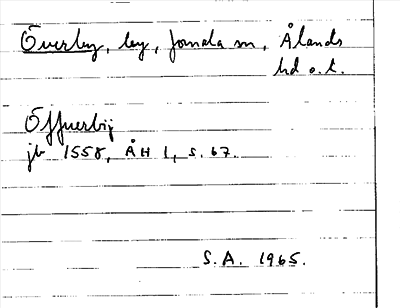 Överby, by, Jomala sn, Ålands
hd o. t.
Öffuerbij
jb 1558, ÅH 1, s. 67.
S.A. 1965.